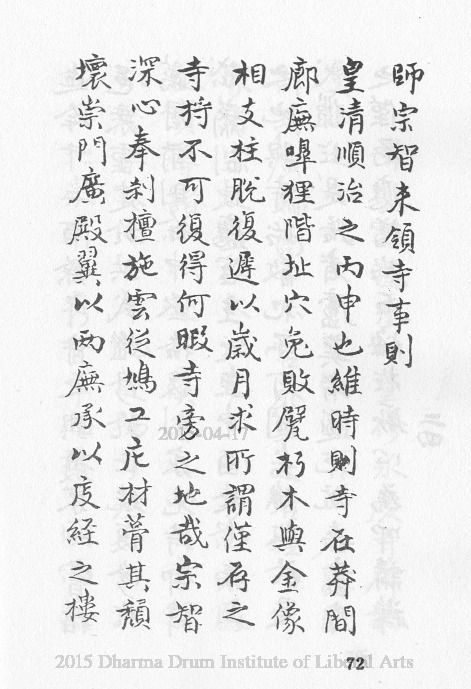 師宗智来領寺事則
皇清順治之丙申也維時則寺在莽間
廊廡嘷狸階址穴兔敗甓朽木與金像
相支柱脫復遲以歲月求所謂僅存之
寺將不可復得何暇寺旁之地哉宗智
深心奉刹檀施雲從鳩工庀材葺其頹
壞崇門廣殿翼以兩廡承以庋経之樓
72
2015 Dharma Drum Institute of Liberal Arts